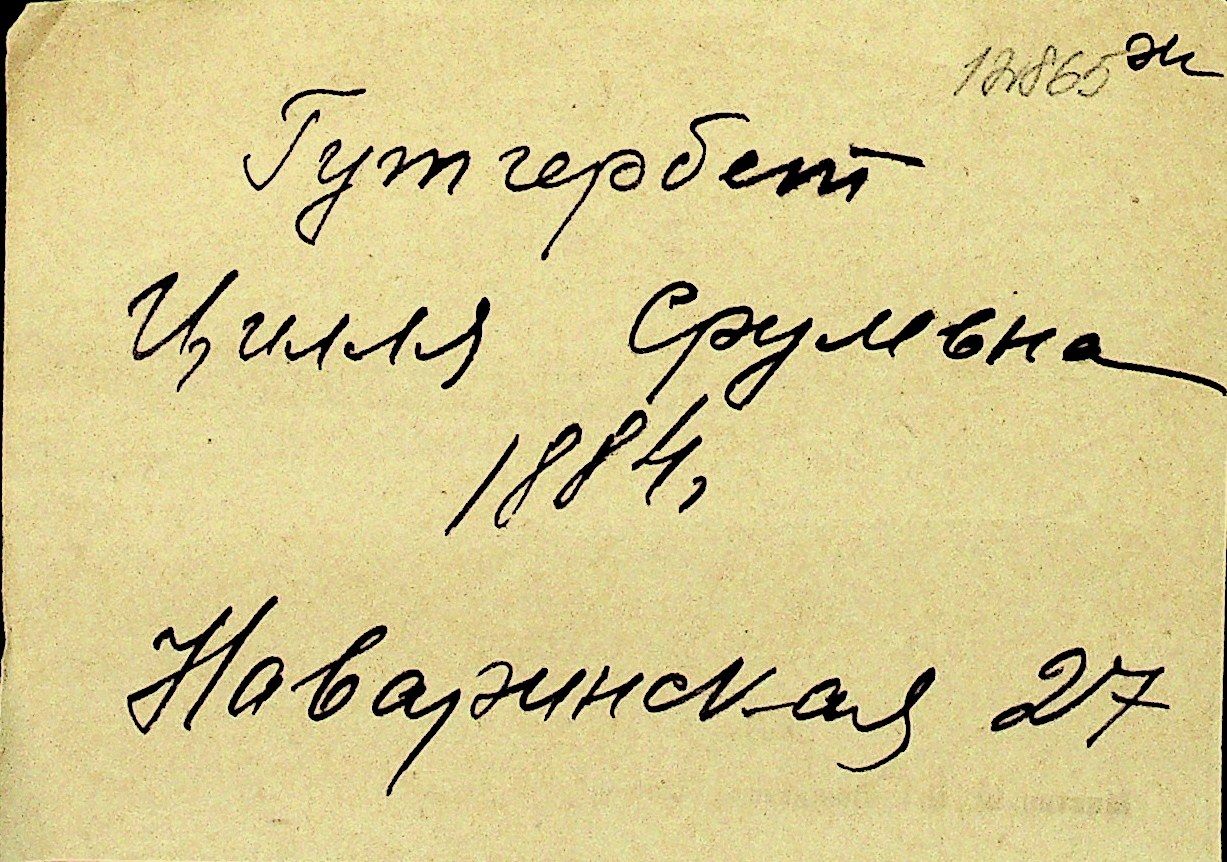 12865 ж
Гутгербет
Цилля Срумьна
1884,
Наваринская 27